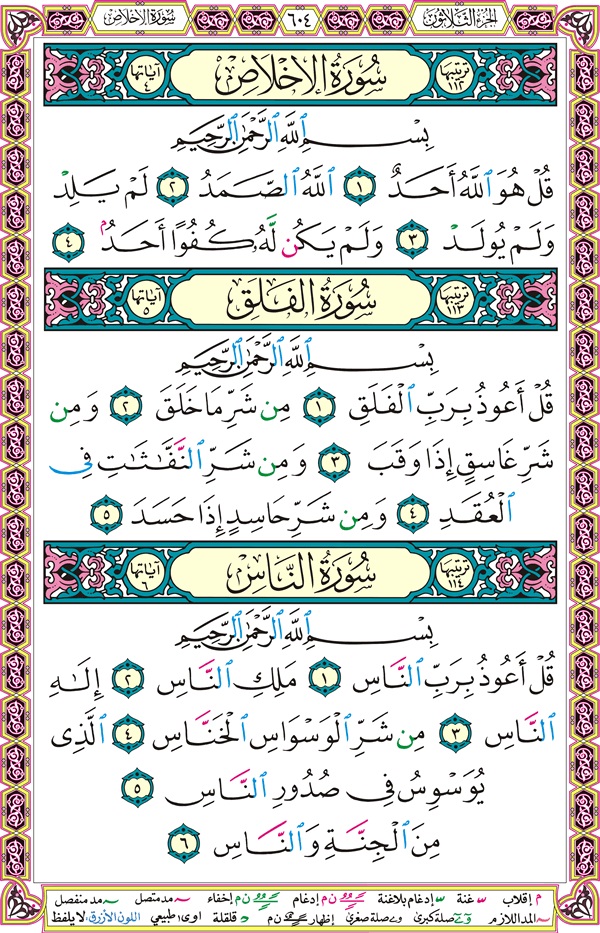 الجزء الثلاثون ٦٠٤ سورة الإخلاص
ترتيبها ١١٢ سُورَةُ الإِخْلَاصِ آياتها ٤
بِسْمِ ٱللَّهِ ٱلرَّحْمَٰنِ ٱلرَّحِيمِ
قُلْ هُوَ ٱللَّهُ أَحَدٌ ١ ٱللَّهُ ٱلصَّمَدُ ٢ لَمْ يَلِدْ
وَلَمْ يُولَدْ ٣ وَلَمْ يَكُن لَّهُۥ كُفُوًا أَحَدٌۢ ٤
ترتيبها ١١٣ سُورَةُ الفَلَقِ آياتها ٥
بِسْمِ ٱللَّهِ ٱلرَّحْمَٰنِ ٱلرَّحِيمِ
قُلْ أَعُوذُ بِرَبِّ ٱلْفَلَقِ ١ مِن شَرِّ مَا خَلَقَ ٢ وَمِن
شَرِّ غَاسِقٍ إِذَا وَقَبَ ٣ وَمِن شَرِّ ٱلنَّفَّٰثَٰتِ فِى
ٱلْعُقَدِ ٤ وَمِن شَرِّ حَاسِدٍ إِذَا حَسَدَ ٥
ترتيبها ١١٤ سُورَةُ النَّاسِ آياتها ٦
بِسْمِ ٱللَّهِ ٱلرَّحْمَٰنِ ٱلرَّحِيمِ
قُلْ أَعُوذُ بِرَبِّ ٱلنَّاسِ ١ مَلِكِ ٱلنَّاسِ ٢ إِلَٰهِ
ٱلنَّاسِ ٣ مِن شَرِّ ٱلْوَسْوَاسِ ٱلْخَنَّاسِ ٤ ٱلَّذِى
يُوَسْوِسُ فِى صُدُورِ ٱلنَّاسِ ٥
مِنَ ٱلْجِنَّةِ وَٱلنَّاسِ ٦
م إقلاب غنة إدغام بلاغنة ن م إدغام ن م إخفاء مد متصل مد منفصل
المد اللازم صلة كبرى صلة صغرى إظهار ن م قلقلة اوى طبيعي اللون الأزرق: لا يلفظ